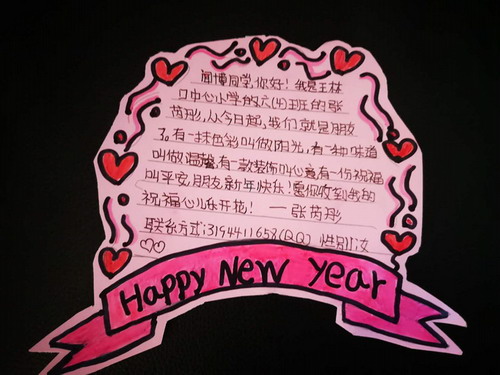 闻博同学,你好!我是王林
口中心小学的六(4)班的张
芮彤,从今日起,我们就是朋友
了。有一抹色彩叫做阳光,有一种味道
叫做温馨,有一款装饰叫心意有一份祝福
叫平安,朋友新年快乐!愿你收到我的
祝福心儿乐开花! —张芮彤
联系方式:3194411658(QQ) 性别:女
Happy New Year